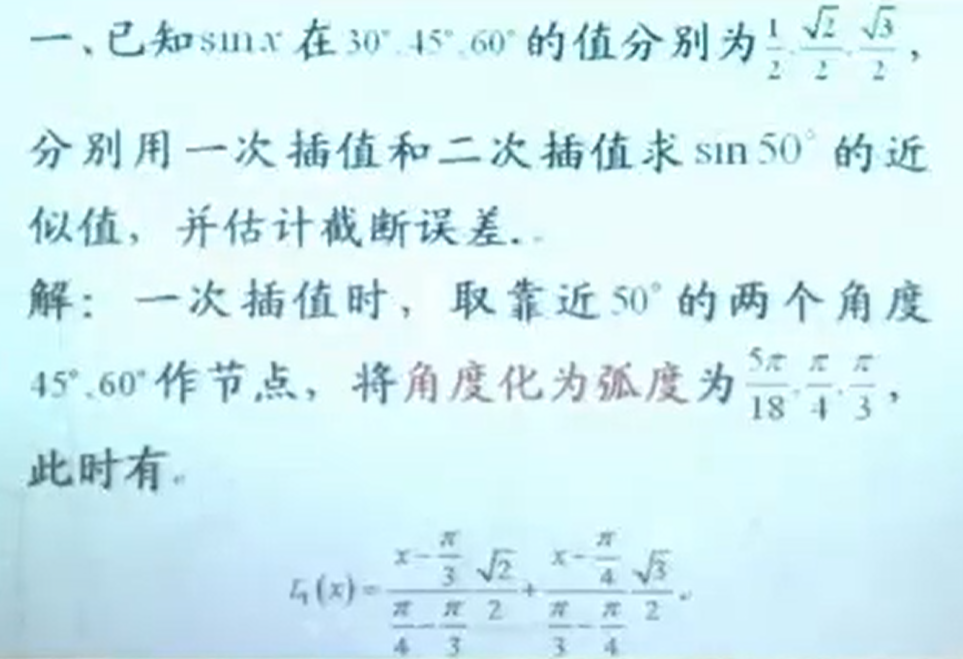 一、已知sin x 在 30°、45°、60° 的值分别为 1/2、√2/2、√3/2，
分别用一次插值和二次插值求 sin 50° 的近
似值，并估计截断误差.
解：一次插值时，取靠近 50° 的两个角度
45°、60° 作节点，将角度化为弧度为 5π/18、π/4、π/3，
此时有
L₁(x) = (x − π/3)/(π/4 − π/3) √2/2 + (x − π/4)/(π/3 − π/4) √3/2